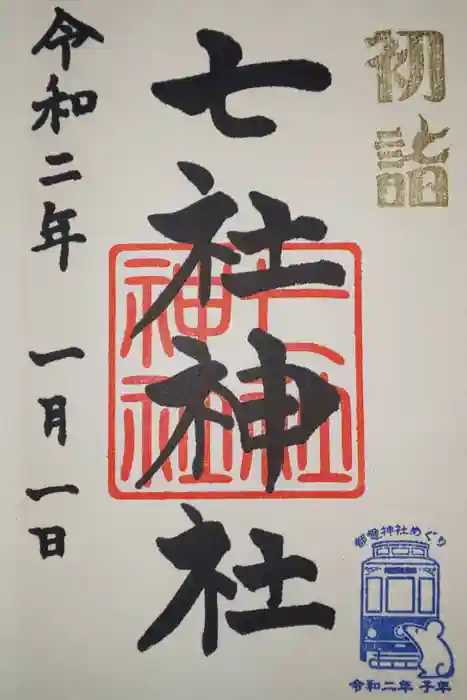 初詣
七社神社
七社神社
令和二年 一月一日
都電神社めぐり
令和二年 子年